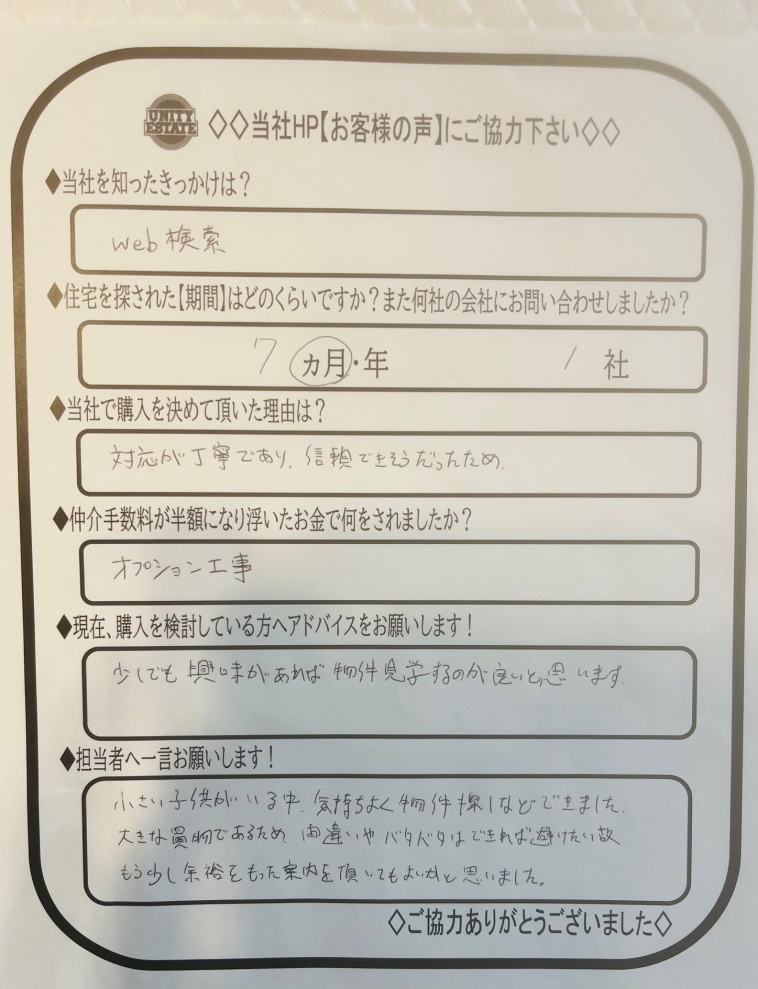 UNITY
ESTATE
◇◇当社HP【お客様の声】にご協力下さい◇◇
◆当社を知ったきっかけは?
web検索
◆住宅を探された【期間】はどのくらいですか?また何社の会社にお問い合わせしましたか?
7 ヵ月・年 1 社
◆当社で購入を決めて頂いた理由は?
対応が丁寧であり、信頼できそうだったため。
◆仲介手数料が半額になり浮いたお金で何をされましたか?
オプション工事
◆現在、購入を検討している方へアドバイスをお願いします!
少しでも興味があれば物件見学するのが良いと思います。
◆担当者へ一言お願いします!
小さい子供がいる中、気持ちよく物件探しなどできました。
大きな買物であるため、間違いやバタバタはできれば避けたい故
もう少し余裕をもった案内を頂いてもよいかと思いました。
◇ご協力ありがとうございました◇